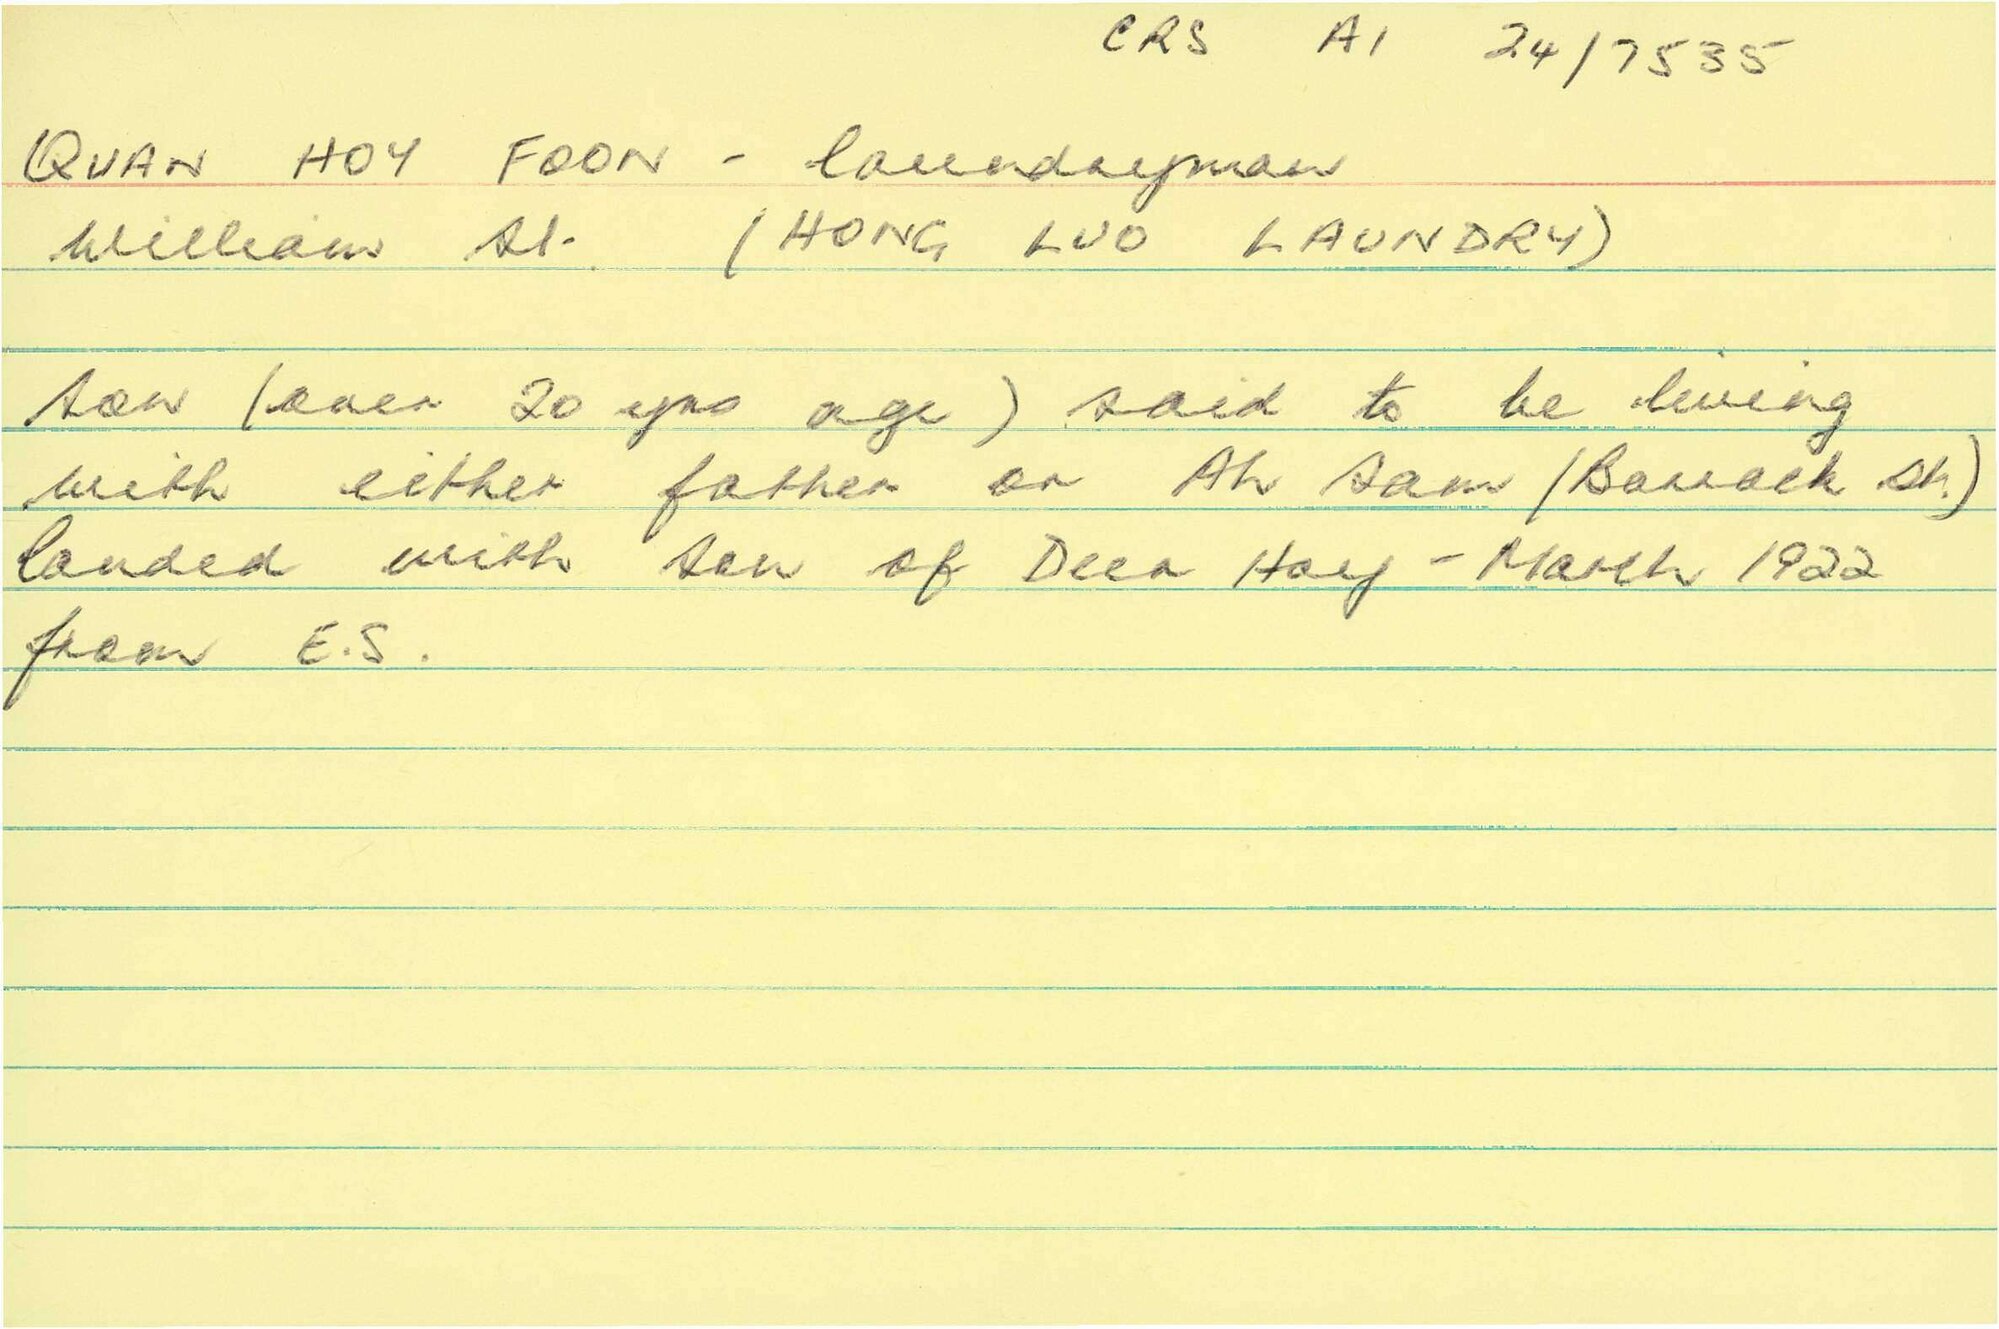 CRS A1 24/7535
QUAN HOY FOON - laundryman
William St. (HONG LUO LAUNDRY)
Son (over 20 yrs age) said to be living
with either father or Ah Sam (Barrack St.)
landed with son of Deer Hoy - March 1922
from E.S.